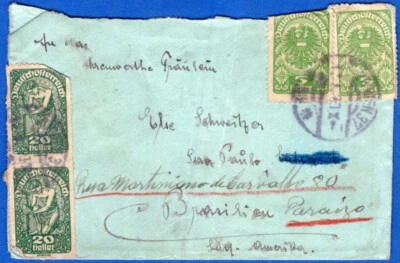 An das
Ehrenwerthe Fräulein
Else Schweitzer
Sao Paulo
Rua Martiniano de Carvalho 20
Brasilien Paraizo
Süd-Amerika.
Deutschösterreich
20
Heller
Deutschösterreich
20
Heller